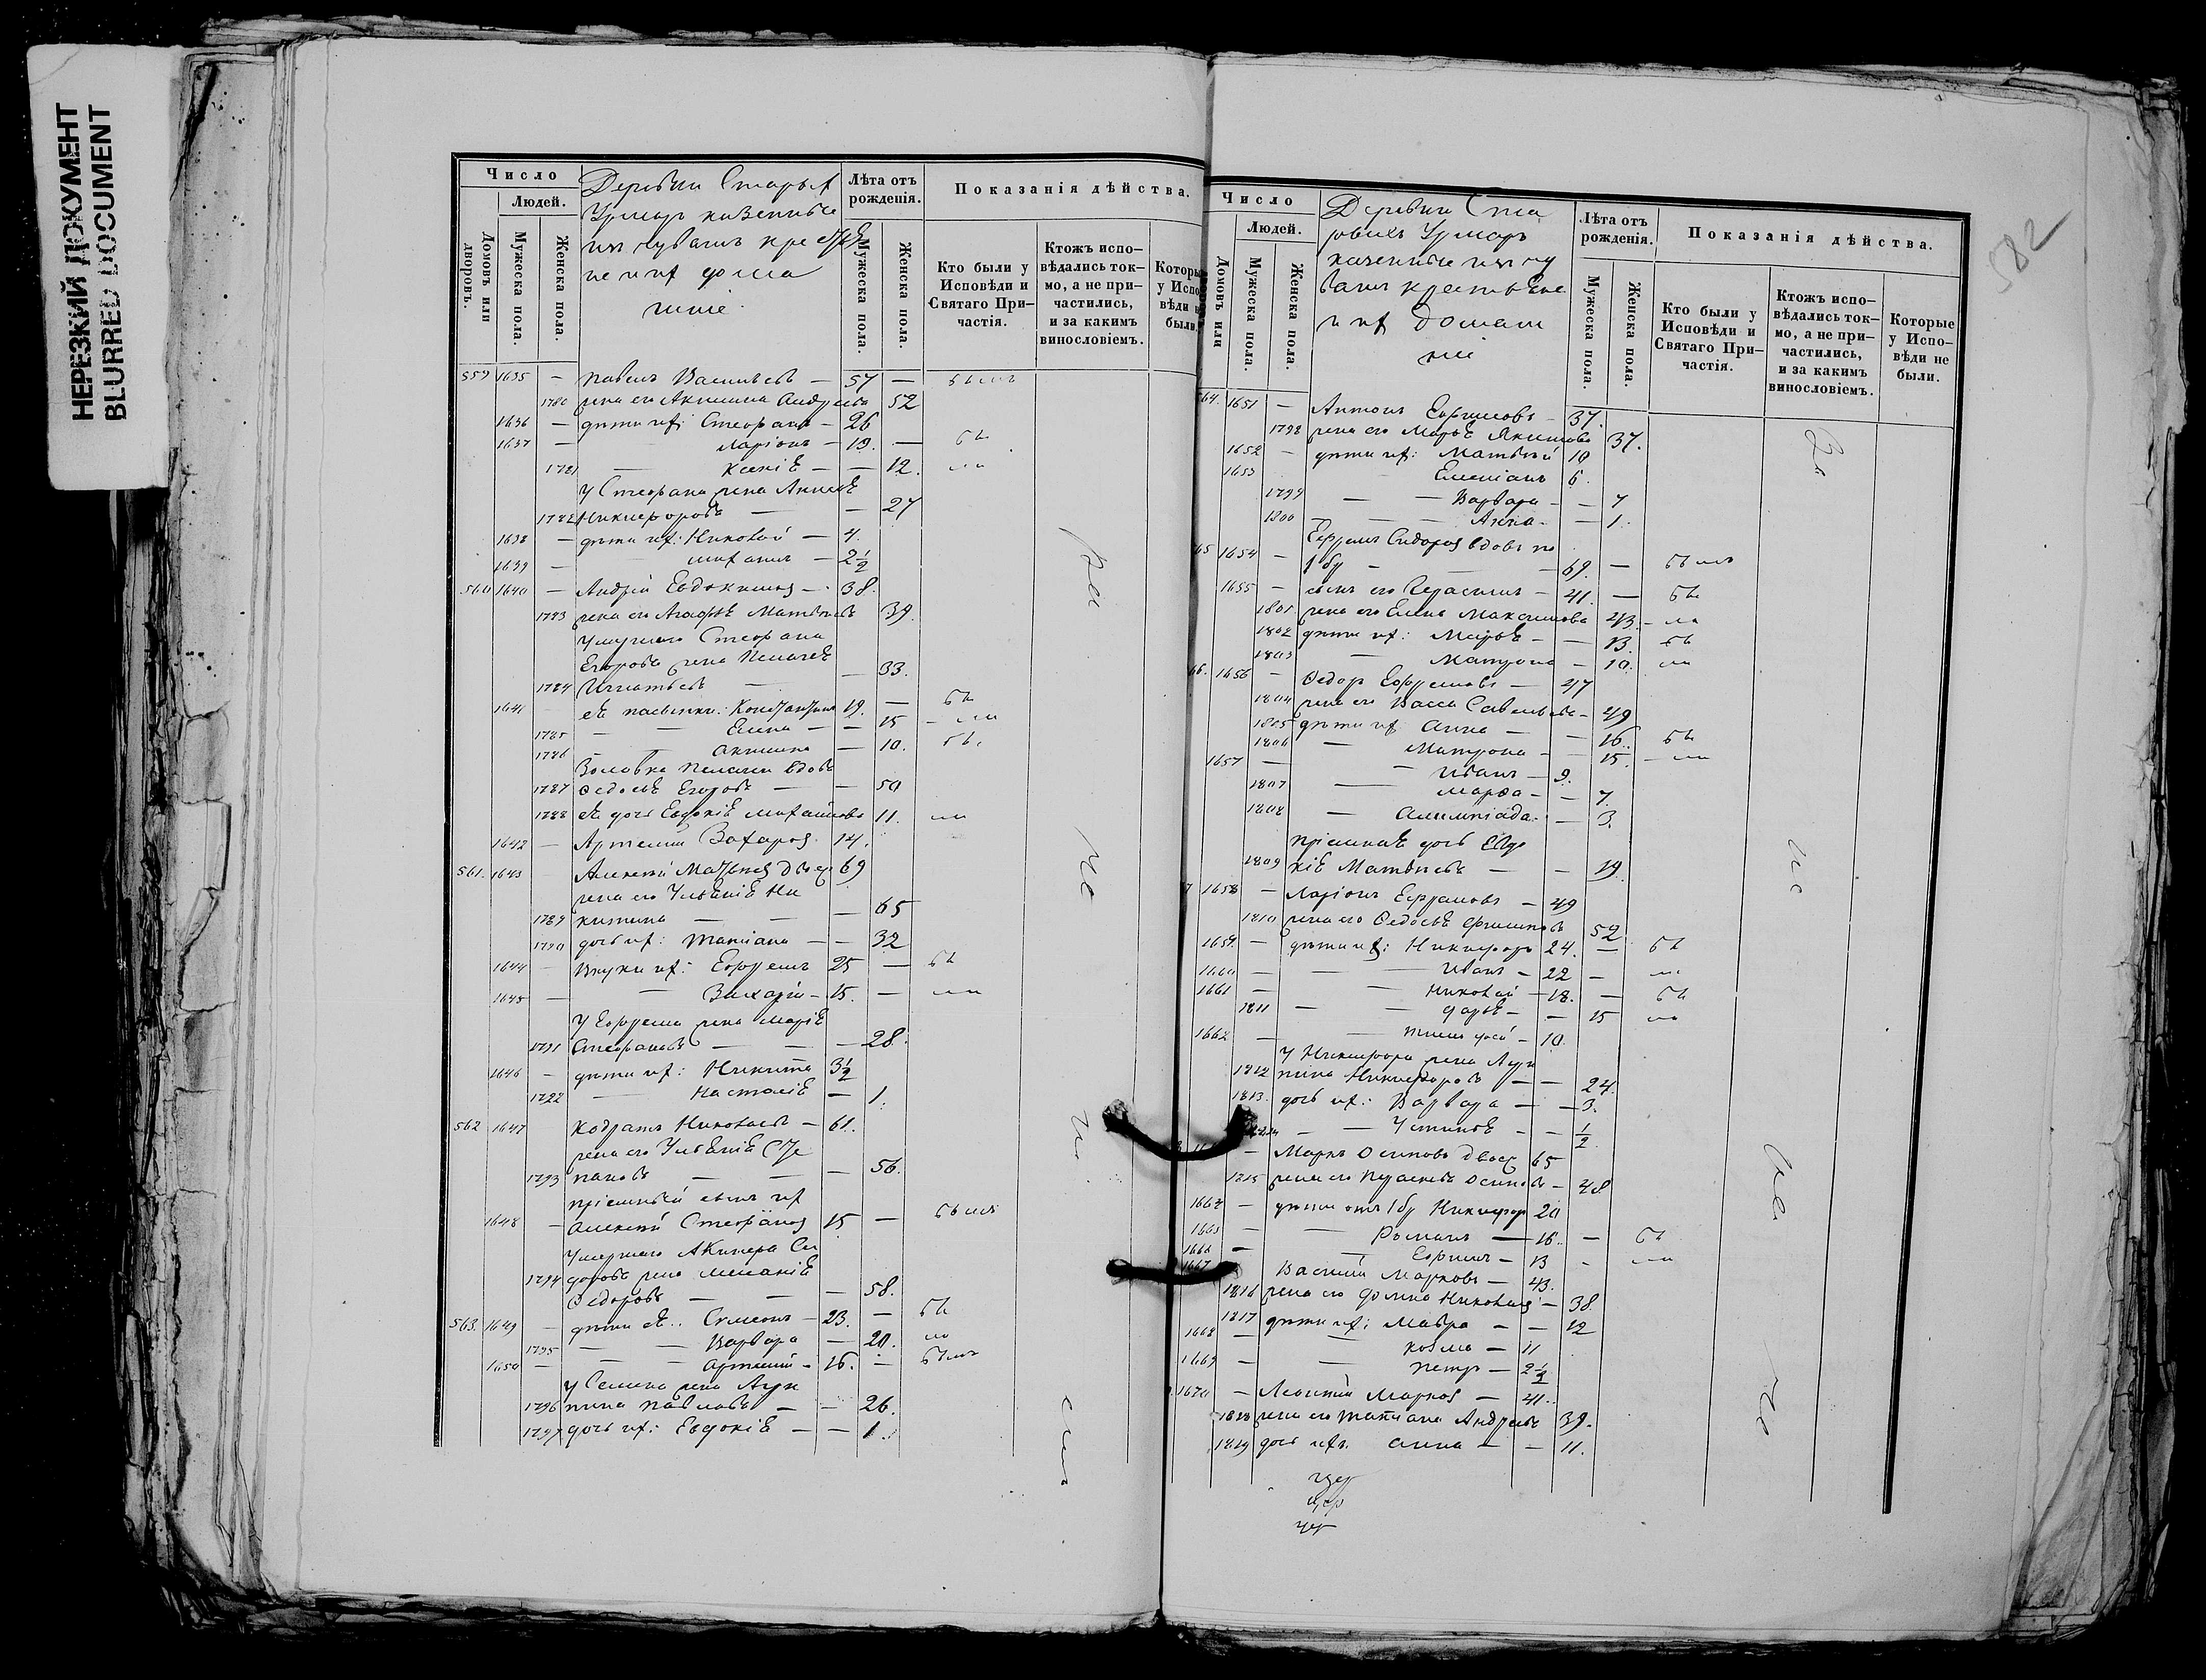 НЕРЕЗКИЙ ДОКУМЕНТ
BLURRED DOCUMENT
Число
Людей.
Домовъ или дворовъ.
Мужеска пола.
Женска пола.
Деревни Старых
Урмаръ казенные
изъ чувашъ крестья
не и их дома
шніе
Лѣта отъ рожденія.
Мужеска пола.
Женска пола.
Показанія дѣйства.
Кто были у Исповѣди и Святаго Причастія.
Ктожъ исповѣдались токмо, а не причастились, и за какимъ винословіемъ.
Которы у Испо вѣди н были.
559 1635 — Павелъ Васильевъ — 57 — былъ
1780 жена его Акилина Андреева 52
1636 — дѣти их: Стефанъ — 26
1637 — Ларіонъ — 19. — бы
1781 — Ксенія — — 12. ли
У Стефана жена Анисія
1782 Никифорова — — 27
1638 — дѣти их: Николай — 4.
1639 — Михаилъ — 2½
560 1640 — Андрей Евдокимов — 38.
1783 жена его Агафія Матвѣева 39.
Умершаго Стефана
Егорова жена Пелагея
1784 Игнатьева — — 33.
1641 ея пасынки: Константинъ 19. — бы
1785 — — Елена — — 15 — ли
1786 — Акилина — 10. бы
Золовка Пелагеи вдова
1787 Федосья Егорова — — 50
1788 ея дочь Евдокія Михайлова 11. ли
1642 — Артемий Захаров 14.
561. 1643 Алексей Матвеев двоеж 69
жена его Ульянія Ни
1789 китина — — — 65
1790 дочь их: Татиана — — 32
1644 — Внуки их: Ефремъ 25 — бы
1645 — — Захарій — 15. — ли
У Ефрема жена Марія
1791 Стефанова — — — 28.
1646 — дѣти их: Никита 3½
1792 — Настасія — 1.
562 1647 Кодратъ Николаевъ — 61.
жена его Ульянія Сте
1793 панова — — — 56.
пріемный сынъ их
1648 — Алексей Стефанов 15 — былъ
Умершаго Акинера Си
1794 дорова жена Меланія
Федорова — — — 58.
563. 1649 — дѣти ея: Симеонъ — 23. — бы
1795 — — Варвара — 20. ли
1650 — — Артемий — 16. — былъ
У Семена жена Агри
1796 пина Павлова — — 26.
1797 дочь их: Евдокія — — 1.
582
Число
Людей.
Домовъ или
Мужеска пола.
Женска пола.
Деревни Ста
рыхъ Урмаръ
казенные изъ чу
вашъ крестьяне
и их домаш
ніе
Лѣта отъ рожденія.
Мужеска пола.
Женска пола.
Показанія дѣйства.
Кто были у Исповѣди и Святаго Причастія.
Ктожъ исповѣдались токмо, а не причастились, и за какимъ винословіемъ.
Которые у Исповѣди не были.
64. 1651 — Антонъ Ефремовъ — 37.
1798 жена его Марья Якимова 37.
1652 — дѣти их: Матвѣй 10
1653 Емеліанъ 6.
1799 — — Варвара — — 7
1800 — — Анна — — 1.
Ефремъ Сидоров вдовъ по
65 1654 — 1 бр — — 69. — былъ
1655 — сынъ его Герасимъ — 41. — бы
1801 жена его Елена Максимова 43. — ла
1802 дѣти их: Марья — — 13. бы
1803 — Матрона — 10. ли
66. 1656 — Федоръ Ефремовъ — 47
1804 жена его Васса Савельева — 49
1805 дѣти их Анна — — 16. бы
1806 — Матрона — — 15. — ли
1657 — — Иванъ — 9.
1807 — Марѳа — — 7.
1808 — Алимпіада — — 3.
пріемная дочь Евдо
1809 кія Матвѣева — — 19
7 1658 — Ларіонъ Ефремовъ — 49
1810 жена его Федосья Филипова 52
1659. — дѣти их: Никифоръ 24. — бы
1660 — — Иванъ — 22 — ли
1661 — — Николай — 18. — бы
1811 — — Дарья — — 15 ли
1662 — — Тимофей — 10.
У Никифора жена Агри
1812 пина Никифорова — — 24.
1813. дочь их: Варвара — — 3.
— — Устинія — — ½
— Маркъ Осиповъ двоеж 65
1815 жена его Прасковья Осипова — 48
1664 — дѣти отъ 1 бр Никифор 20
1665 — — Романъ — 16. — бы
1666 — — Ефимъ — 13 — ли
1667 Василий Марковъ — 43.
1816 жена его Домна Николаева — 38
1817 дѣти их: Мавра — — 12
1668 — — Козма — 11
1669 — — Петръ — 2½
1670 — Леонтій Марков — 41.
1818 жена его Татиана Андреева 39.
1819 дочь ихъ Анна — — 11.